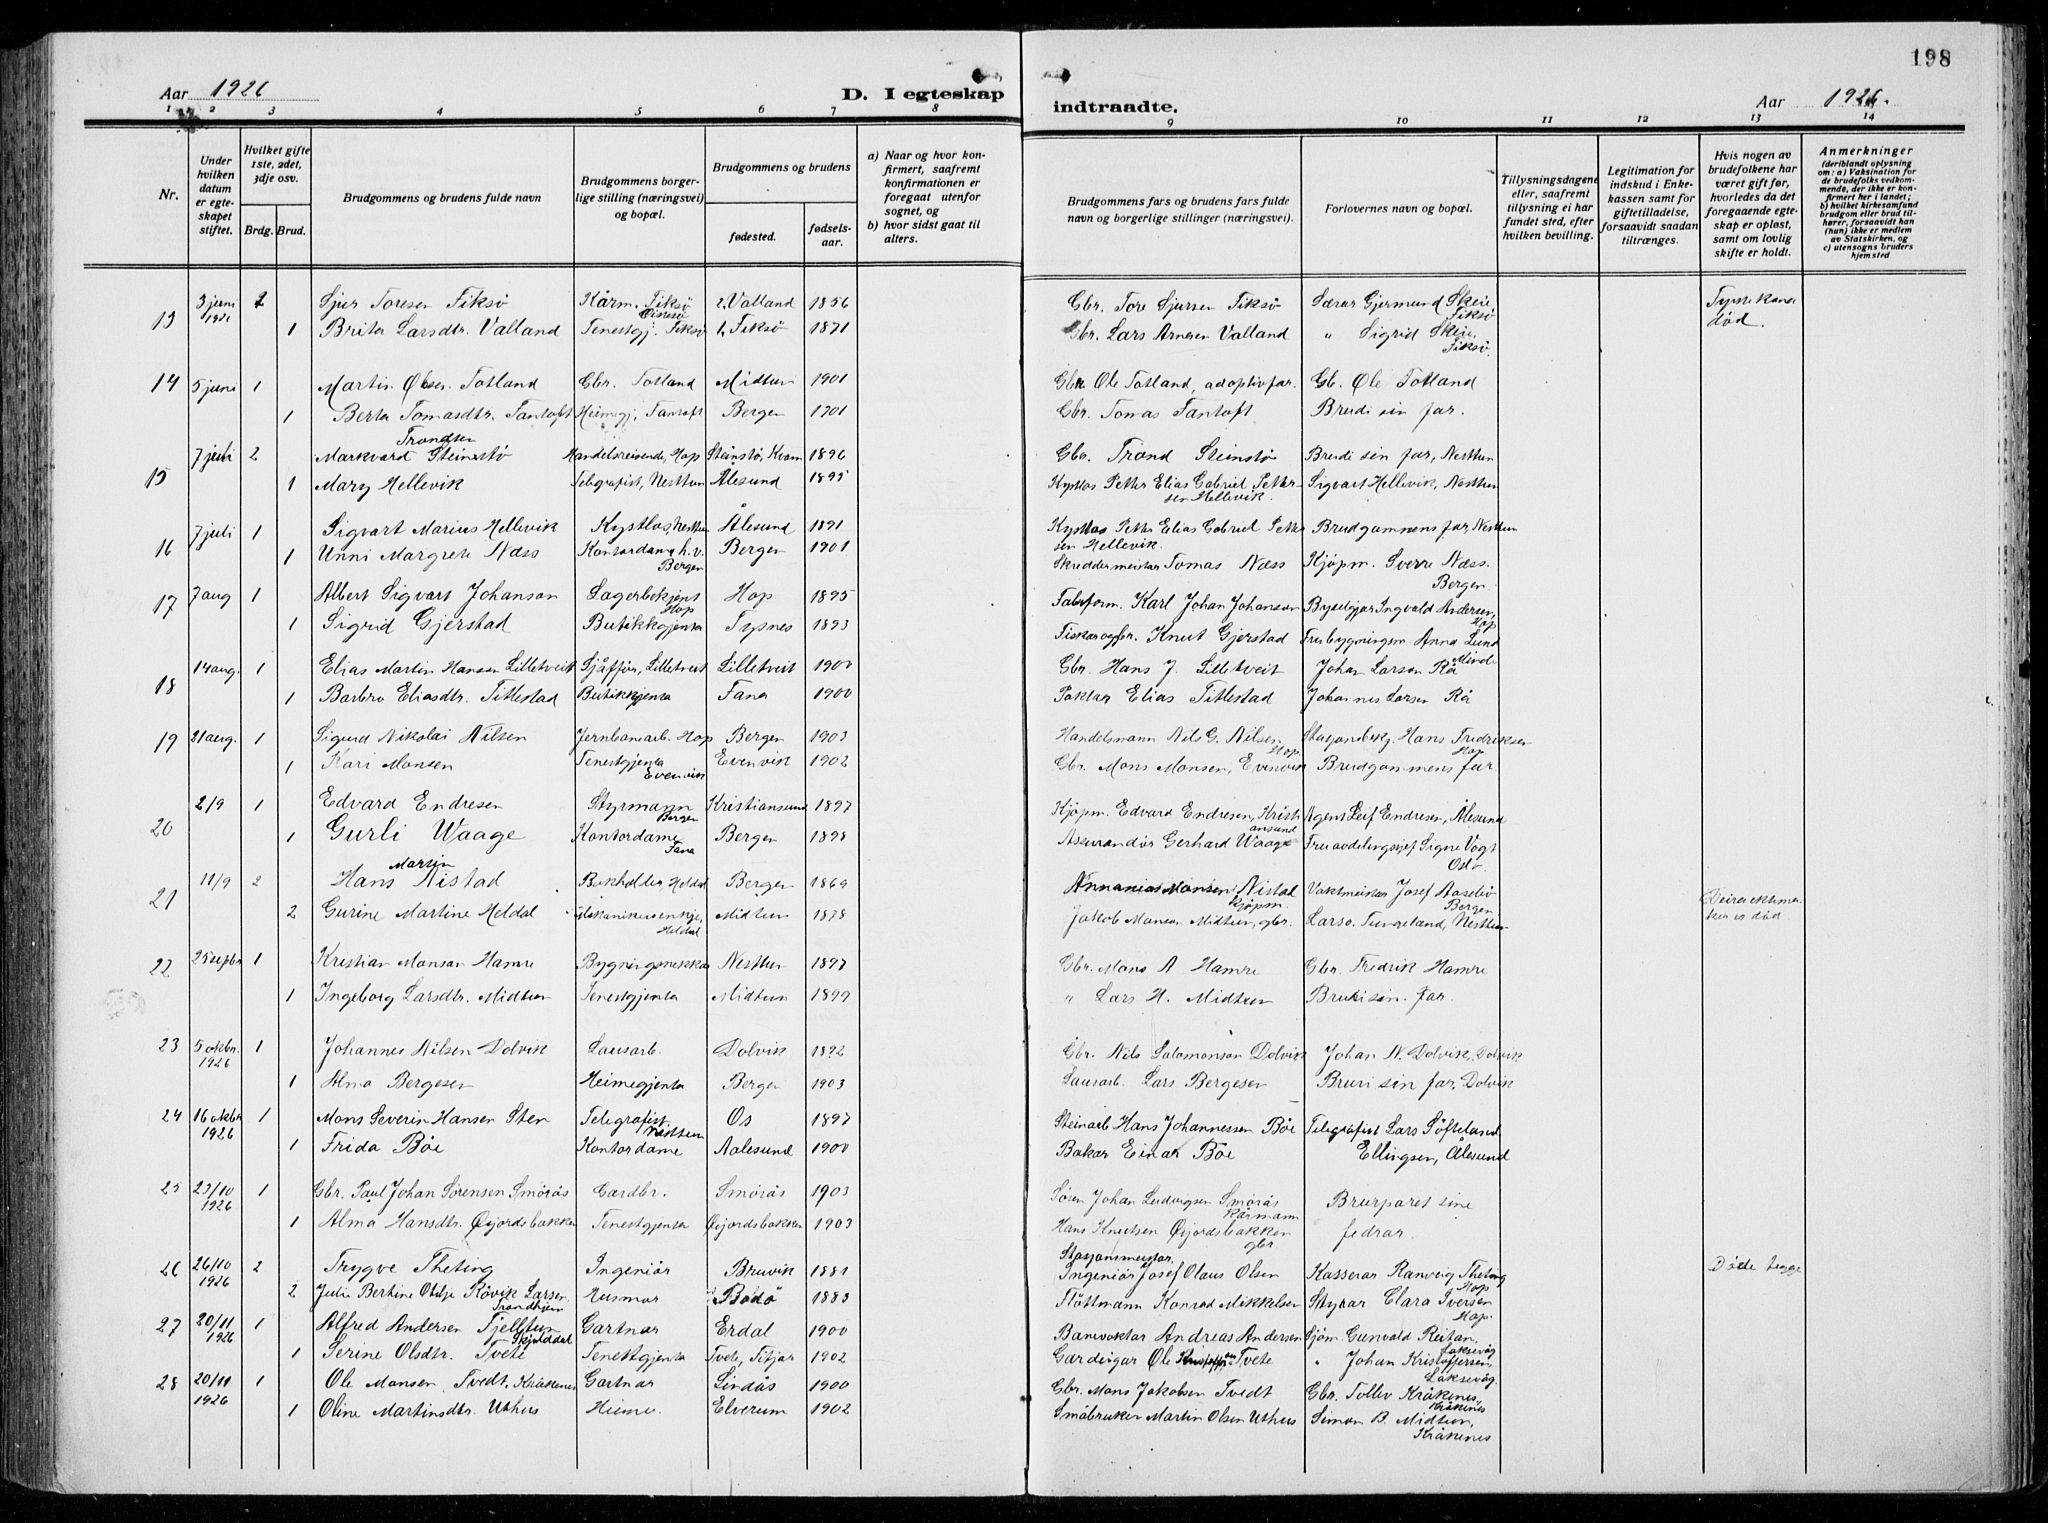 198
Aar 1926
D. I egteskap
indtraadte.
Aar 1926.
1 2 3 4 5 6 7 8 9 10 11 12 13 14
Nr.
Under hvilken datum er egteskapet stiftet.
Hvilket gifte 1ste, 2det, 3dje osv.
Brdg. Brud.
Brudgommens og brudens fulde navn
Brudgommens borgerlige stilling (næringsvei) og bopæl.
Brudgommens og brudens
fødested.
fødselsaar.
a) Naar og hvor konfirmert, saafremt konfirmationen er foregaat utenfor sognet, og
b) hvor sidst gaat til alters.
Brudgommens fars og brudens fars fulde navn og borgerlige stillinger (næringsvei).
Forlovernes navn og bopæl.
Tillysningsdagene eller, saafremt tillysning ei har fundet sted, efter hvilken bevilling.
Legitimation for indskud i Enkekassen samt for giftetilladelse, forsaavidt saadan tiltrænges.
Hvis nogen av brudefolkene har været gift før, hvorledes da det foregaaende egteskap er opløst, samt om lovlig skifte er holdt.
Anmerkninger
(deriblandt oplysning om: a) Vaksination for de brudefolks vedkommende, der ikke er konfirmert her i landet; b) hvilket kirkesamfund brudgom eller brud tilhører, forsaavidt han (hun) ikke er medlem av Statskirken, og c) utensogns bruders hjemsted
13 3 juni 1926 2 Sjur Toresen Fiksø Kårm. Fiksø Østesø Valland 1856 Gbr. Tore Sjursen Fiksø Lærar Gjermund Skeie Fiksø
død.
1 Brita Larsdtr. Valland Tenestgj. Fiksø Fiksø 1871 Gbr. Lars Arnesen Valland " Sigrid Skeie, Fiksø.
14 5 juni 1 Martin Olsen Totland Gbr. Totland Midtun 1901 Gbr. Ole Totland, adoptivfar. Gb. Ole Totland
1 Berta Tomasdtr. Fantoft Heimegj, Fantoft Bergen 1901 Gbr. Tomas Fantoft Brudi sin far.
15 7 juli 2 Markvard Trondsen Steinstø Handelsreisende, Hop Steinstø, Kvam 1896 Gbr. Trond Steinstø Brudi sin far, Nesttun
1 Mary Hellevik Telegrafist, Nesttun Ålesund 1895 Kystlos Petter Elias Gabriel Pettersen Hellevik. Sigvart Hellevik, Nesttun
16 7 juli 1 Sigvart Marius Hellevik Kystlos, Nesttun Ålesund 1891 Kystlos Petter Elias Gabriel Pettersen Hellevik. Brudgommens far, Nesttun
1 Unni Margrete Næss Kontordame h.v. Bergen Bergen 1901 Skreddermeister Tomas Næss Kjøpm. Sverre Næss. Bergen
17 7 aug 1 Albert Sigvart Johanson Lagerbetjent Hop Hop 1895 Fabrform. Karl Johan Johanson Ingvald Andersen, Hop
1 Sigrid Gjerstad Butikkgjenta Tysnes 1893 Fiskar og gbr. Knut Gjerstad Fru bygningsm Anna Lund Minde
18 14 aug. 1 Elias Martin Hansen Lilletveit Sjåffør, Lilletveit Lilletveit 1900 Gbr. Hans J. Lilletveit Johan Larsen Rå
1 Barbro Eliasdtr. Titlestad Butikkjenta Fana 1900 Paktar Elias Titlestad Johannes Larsen Rå
19 21 aug. 1 Sigurd Nikolai Nilsen Jernbanearb. Hop Bergen 1903 Handelsmann Nils G. Nilsen, Hop. Stasjonsbetj. Hans Fredriksen Hop
1 Kari Monsen Tenestgjenta Evenvik Evenvik 1902 Gbr. Mons Monsen, Evinvik Brudgommens far.
20 2/9 1 Edvard Endresen Styrmann Bergen Kristiansund 1897 Kjøpm. Edvard Endresen, Kristiansund Agent Leif Endresen, Ålesund
1 Gurli Waage Kontordame Fana Bergen 1898 Assurandør Gerhard Waage Fru avdelingssjef Signe Vogt Oslo
21 11/9 2 Hans Martin Nistad Bokholder, Heldal Bergen 1869 Annanias Monsen Nistad kjøpm. Vaktmeister Josef Aaseløv Bergen
død
2 Gurine Martine Heldal Heldal Midtun 1878 Jakob Monsen Midtun, gbr. Lars O. Tungeland, Nesttun
22 25 septbr 1 Kristian Monsen Hamre Bygningsnekkar Nesttun 1897 Gbr. Mons A Hamre Gbr. Fredrik Hamre
1 Ingeborg Larsdtr. Midtun Tenestgjenta Midtun 1899 " Lars H. Midtun Brudi sin far.
23 5 oktbr. 1926 1 Johannes Nilsen Dolvik Lausarb. Dolvik 1892 Gbr. Nils Salomonsen Dolvik Johan N. Dolvik, Dolvik
1 Alma Bergesen Heimegjenta Bergen 1903 Lausarb. Lars Bergesen Bruri sin far, Dolvik
24 16 oktbr 1926 1 Mons Severin Hansen Sten Telegrafist Nesttun Os 1897 Steinarb Hans Johannessen Böe Telegrafist Lars Søfteland
1 Frida Böe Kontordame Aalesund 1900 Bakar Einar Böe Ellingsen, Ålesund
25 23/10 1926 1 Gbr. Paul Johan Sørensen Smörås Gardbr. Smörås 1903 Søren Johan Ludvigsen Smörås kårmann Brurparet sine
1 Alma Hansdtr. Øvjordsbakken Tenestgjenta Øvjordsbakken 1903 Hans Knutsen Øvjordsbakken gbr. fedrar.
26 26/10 1926 2 Trygve Theting Ingeniör Bruvik 1881 Stasjonsmeistar Ingeniör Josef Olaus Olsen Kasserar Ranveig Theting Hop
Döde begge
2 Julie Bertine Otilje Rövik Larsen Trondhjem Husmor Bodø 1883 Fløttmann Konrad Mikkelsen Styrar Clara Iversen Hop.
27 20/11 1926 1 Alfred Andersen Tjelltun Skjolddal Gartnar Erdal 1900 Banevaktar Andreas Andersen Sjøm. Gunvald Reitan, Laksevåg
1 Serine Olsdtr. Tvete Tenestgjenta Tvete, Fitjar 1902 Gardeigar Ole Kristoffersen Tvete " Johan Kristoffersen, Laksevåg.
28 20/11 1926 1 Ole Monsen Tvedt, Kråkenes Gartnar Lindås 1900 Gbr. Mons Jakobsen Tvedt Gbr. Tollev Kråkenes, Kråkenes
1 Oline Martinsdtr. Uthus Heime. Elverum 1902 Småbruker Martin Olsen Uthus Simon B. Midtun, Kråkenes